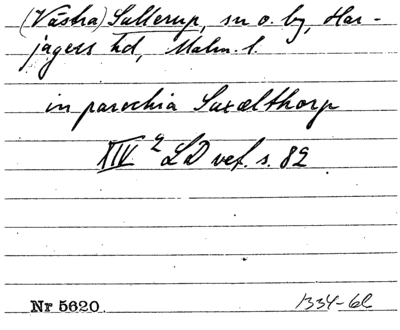 (Västra) Sallerup, sn o. by, Har-
jagers hd, Malm. l.
in parochia Saxælthorp
XIV 2 LD vef. s. 82
Nr 5620.
1334-60